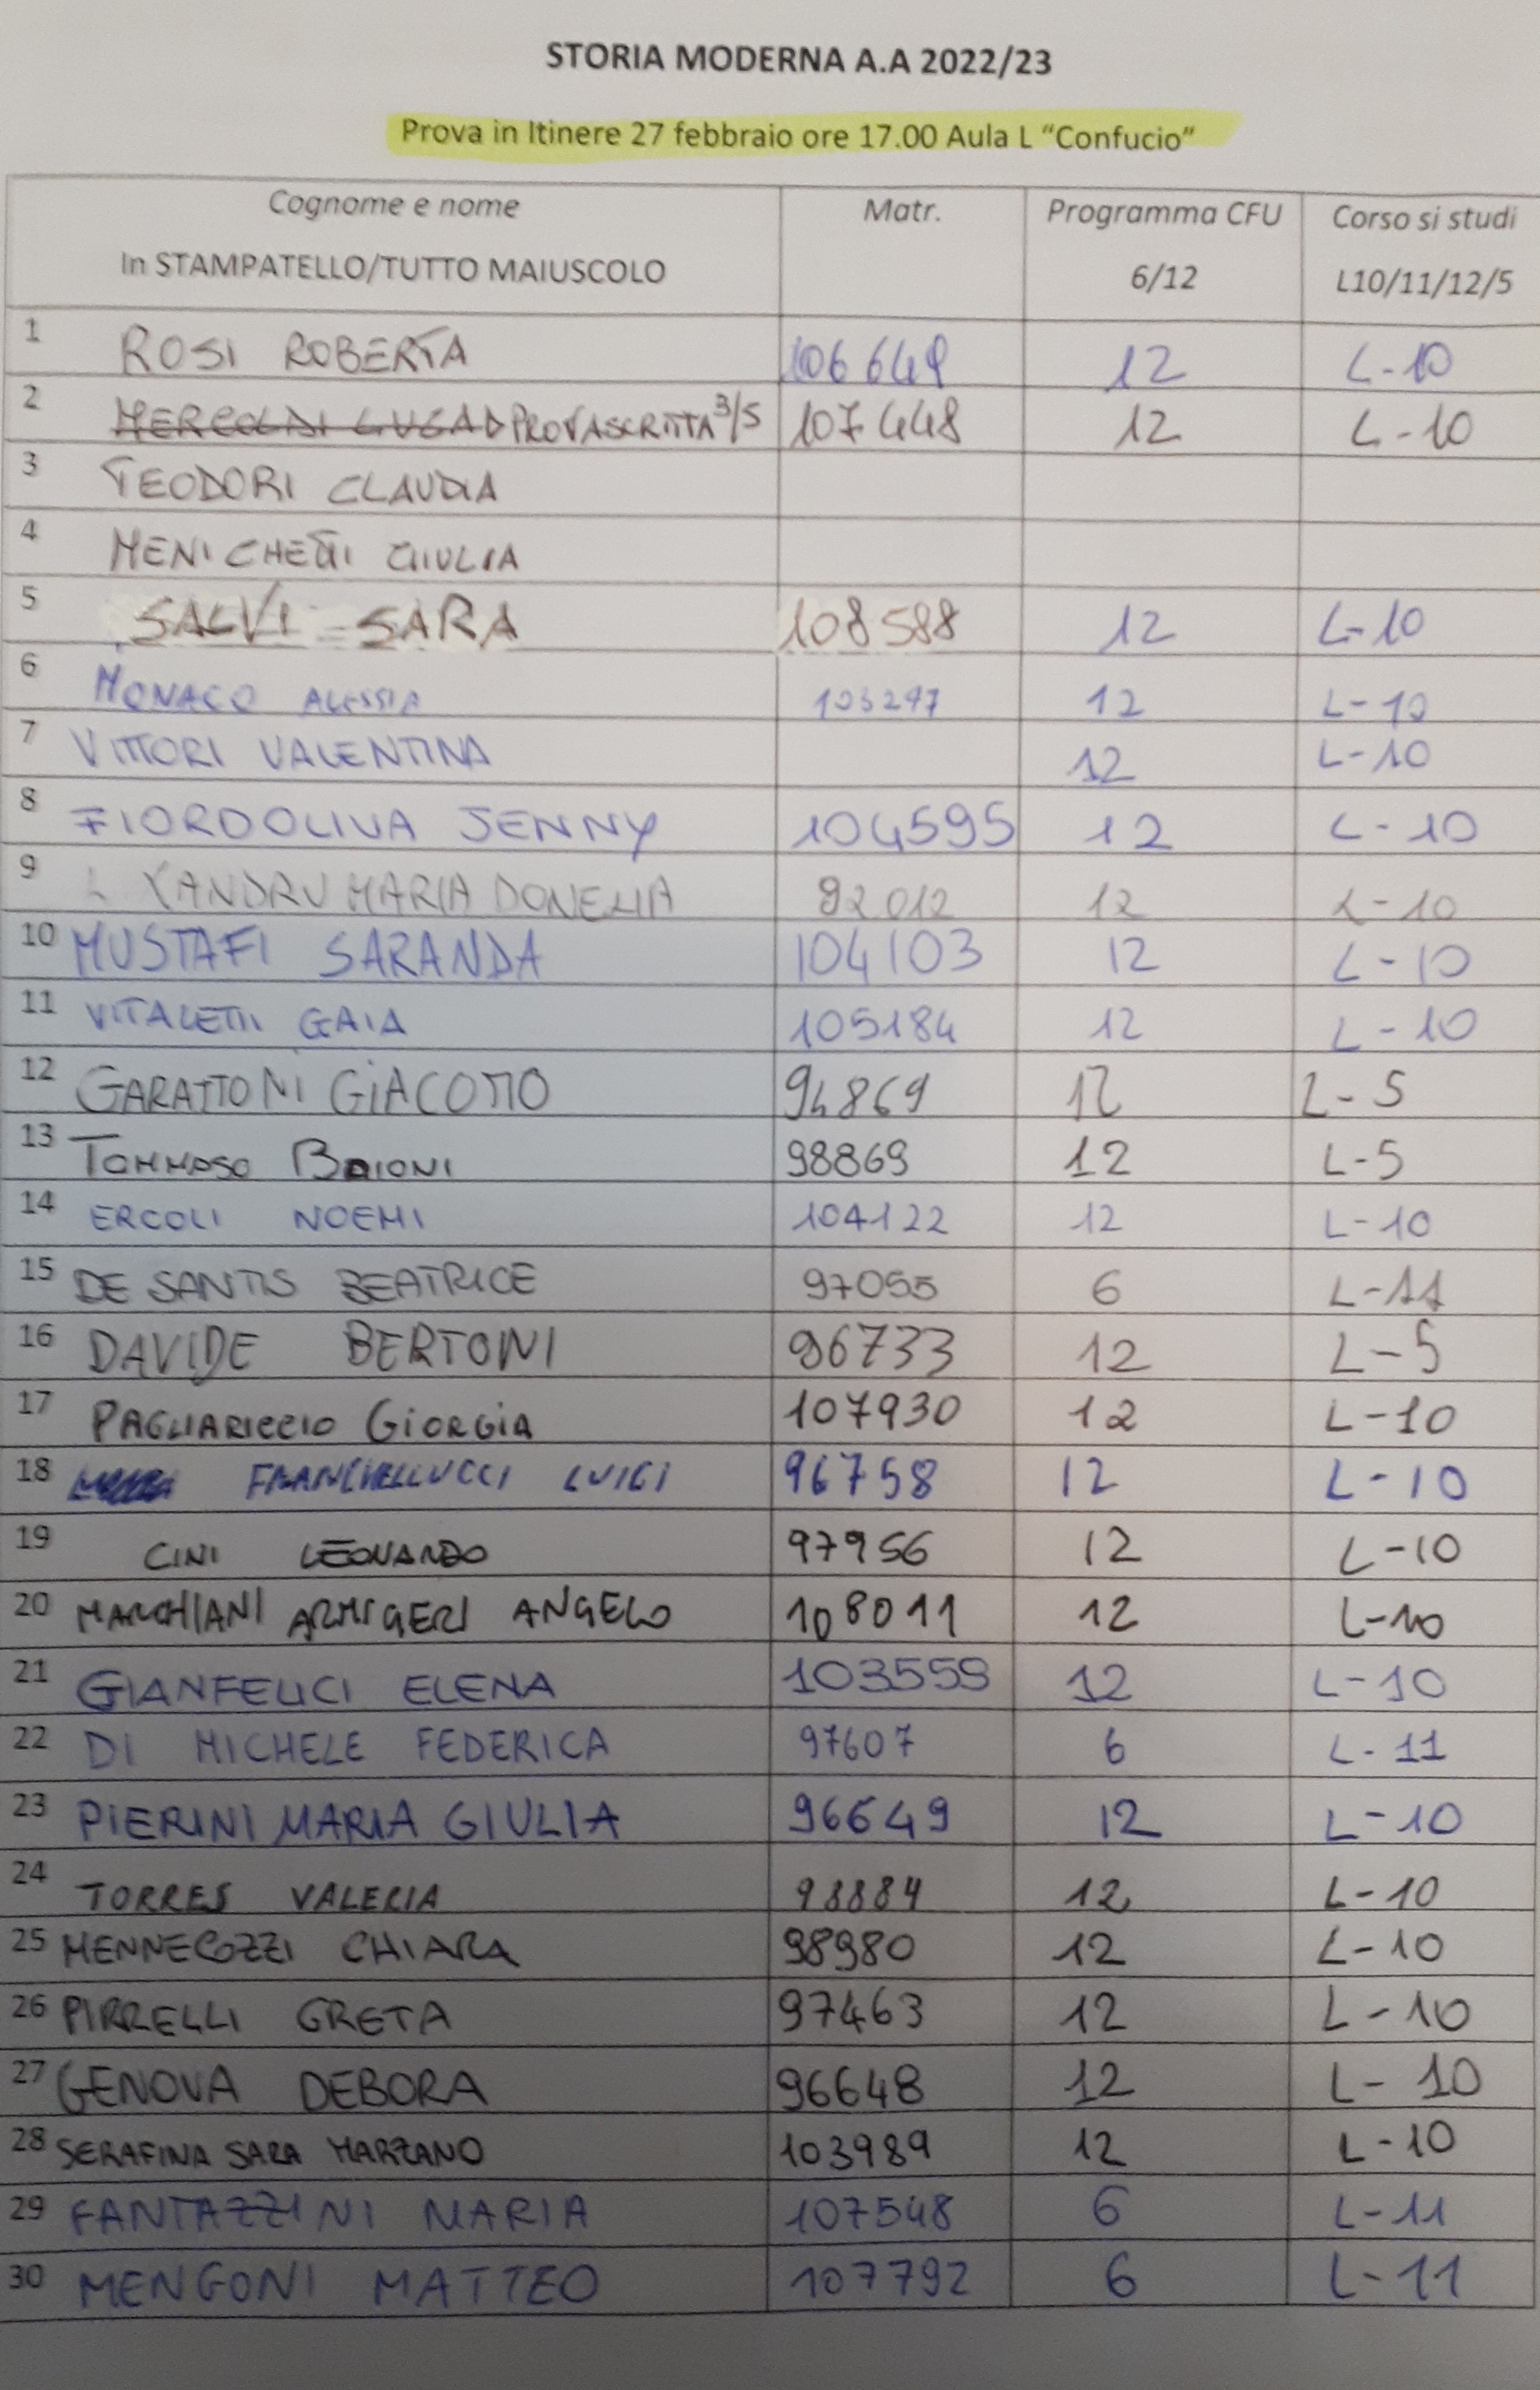 STORIA MODERNA A.A 2022/23
Prova in Itinere 27 febbraio ore 17.00 Aula L "Confucio"
Cognome e nome Matr. Programma CFU Corso si studi
In STAMPATELLO/TUTTO MAIUSCOLO 6/12 L10/11/12/5
1 ROSI ROBERTA 106649 12 L-10
2 PROVA SCRITTA 3/5 107448 12 L-10
3 TEODORI CLAUDIA
4 MENICHETTI GIULIA
5 SALVI SARA 108588 12 L-10
6 MONACO ALESSIA 103297 12 L-10
7 VITTORI VALENTINA 12 L-10
8 FIORDOLIVA JENNY 104595 12 L-10
9 MARIA DONELIA 92012 12 L-10
10 MUSTAFI SARANDA 104103 12 L-10
11 VITALETTI GAIA 105184 12 L-10
12 GARATTONI GIACOMO 94869 12 L-5
13 TOMMASO BAIONI 98869 12 L-5
14 ERCOLI NOEMI 104122 12 L-10
15 DE SANTIS BEATRICE 97055 6 L-11
16 DAVIDE BERTONI 96733 12 L-5
17 PAGLIARICCIO GIORGIA 107930 12 L-10
18 FRANCHELLUCCI LUIGI 96758 12 L-10
19 CINI LEONARDO 97956 12 L-10
20 MARCHIANI ARMIGERI ANGELO 108011 12 L-10
21 GIANFELICI ELENA 103559 12 L-10
22 DI MICHELE FEDERICA 97607 6 L-11
23 PIERINI MARIA GIULIA 96649 12 L-10
24 TORRES VALERIA 98884 12 L-10
25 MENNECOZZI CHIARA 98980 12 L-10
26 PIRRELLI GRETA 97463 12 L-10
27 GENOVA DEBORA 96648 12 L-10
28 SERAFINA SARA MARZANO 103989 12 L-10
29 FANTAZZINI MARIA 107548 6 L-11
30 MENGONI MATTEO 107792 6 L-11